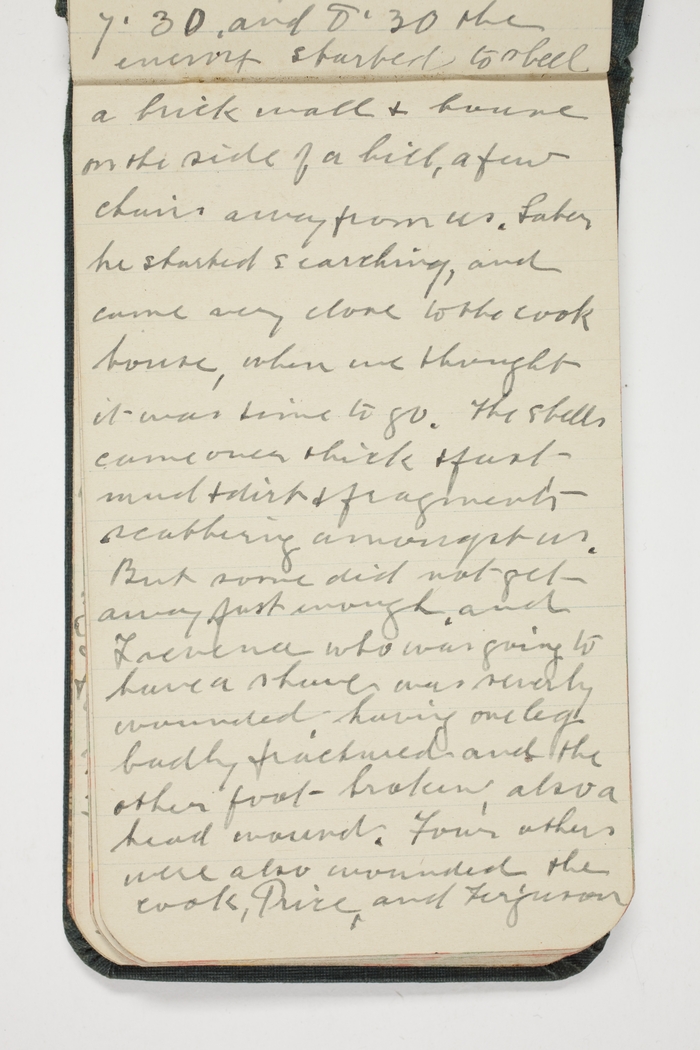 7.30, and 8.30 the
enemy started to shell
a brick wall & house
on the side of a hill, a few
chains away from us. Later
he started searching, and
came very close to the cook
house, when we thought
it was time to go. The shells
came over thick & fast
mud & dirt & fragments
scattering amongst us.
But some did not get
away fast enough, and
who was going to
have a shave was severly
wounded having one leg
badly fractured and the
other foot broken, also a
head wound. Four others
were also wounded the
cook, Price, and Ferguson